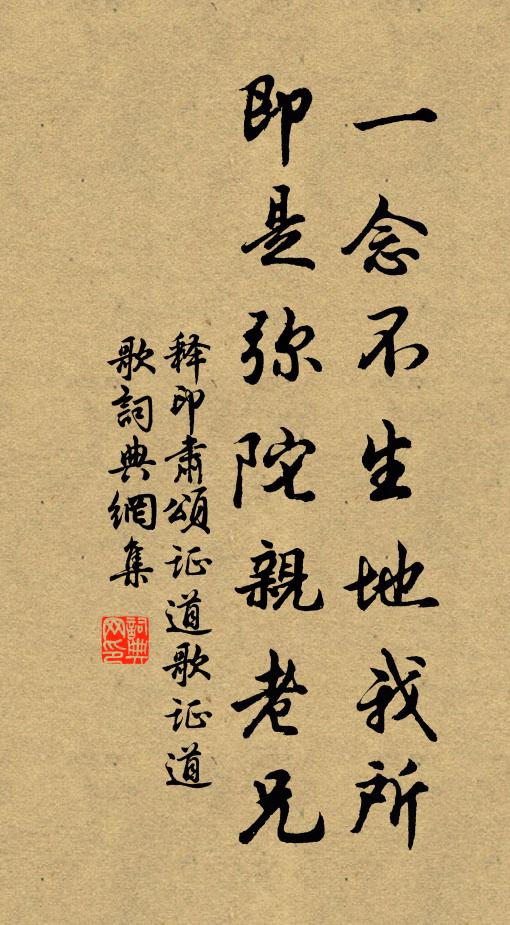 一念不生地我所
即是弥陀親老兄
释印肃頌证道歌证道
歌詞典網集
詞典网印